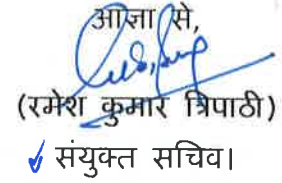 आज्ञा से,
(रमेश कुमार त्रिपाठी)
संयुक्त सचिव।